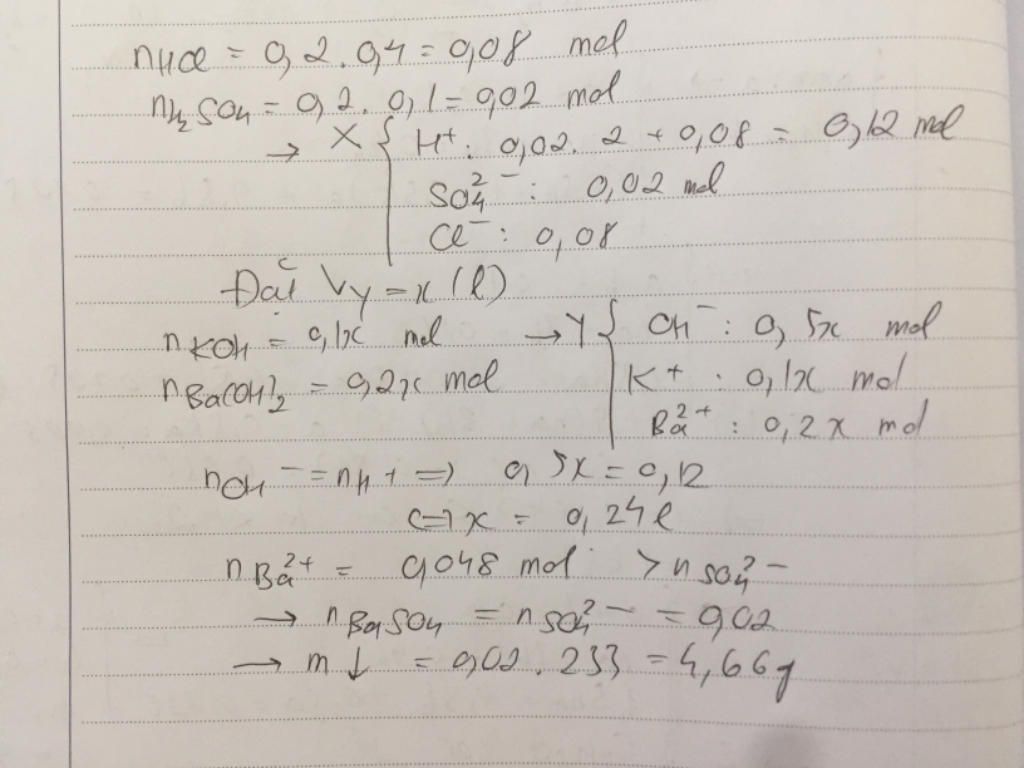 nHCl = 0,2 . 0,4 = 0,08 mol
nH₂SO₄ = 0,2 . 0,1 = 0,02 mol
→ X { H⁺ : 0,02 . 2 + 0,08 = 0,12 mol
SO₄²⁻ : 0,02 mol
Cl⁻ : 0,08
Đặt Vy = x (l)
nKOH = 0,1x mol → Y { OH⁻ : 0,5x mol
nBa(OH)₂ = 0,2x mol K⁺ : 0,1x mol
Ba²⁺ : 0,2x mol
nOH⁻ = nH⁺ => 0,5x = 0,12
<=> x = 0,24l
nBa²⁺ = 0,048 mol > nSO₄²⁻
→ nBaSO₄ = nSO₄²⁻ = 0,02
→ m↓ = 0,02 . 233 = 4,66g